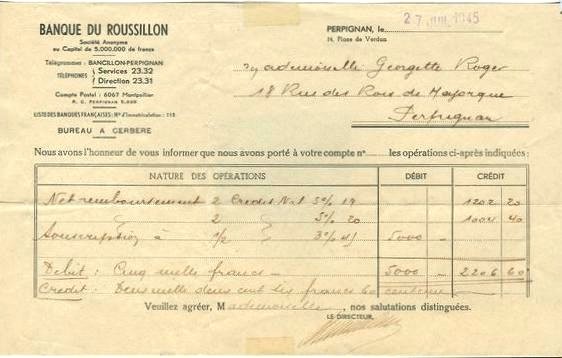 BANQUE DU ROUSSILLON
Société Anonyme
au Capital de 5.000.000 de francs
Télégrammes : BANCILLON-PERPIGNAN
TÉLÉPHONES { Services 23.32
Direction 23.31
Compte Postal : 6067 Montpellier
R. C. PERPIGNAN
LISTE DES BANQUES FRANÇAISES: Nº d'Immatriculation : 115
BUREAU A CERBÈRE
PERPIGNAN, le 27 JUIL 1945
14, Place de Verdun
Mademoiselle Georgette Roger
18 Rue des Rois de Majorque
Perpignan
Nous avons l'honneur de vous informer que nous avons porté à votre compte nº les opérations ci-après indiquées :
NATURE DES OPÉRATIONS DÉBIT CRÉDIT
Net remboursement 2 Crédit Nat 5% 19 1202 20
2 5% 20 1004 40
Souscription à 1/2 3% 45 5000 -
Débit : Cinq mille francs - 5000 - 2206 60
Crédit : Deux mille deux cent six francs 60 centimes
Veuillez agréer, Mademoiselle, nos salutations distinguées.
LE DIRECTEUR,